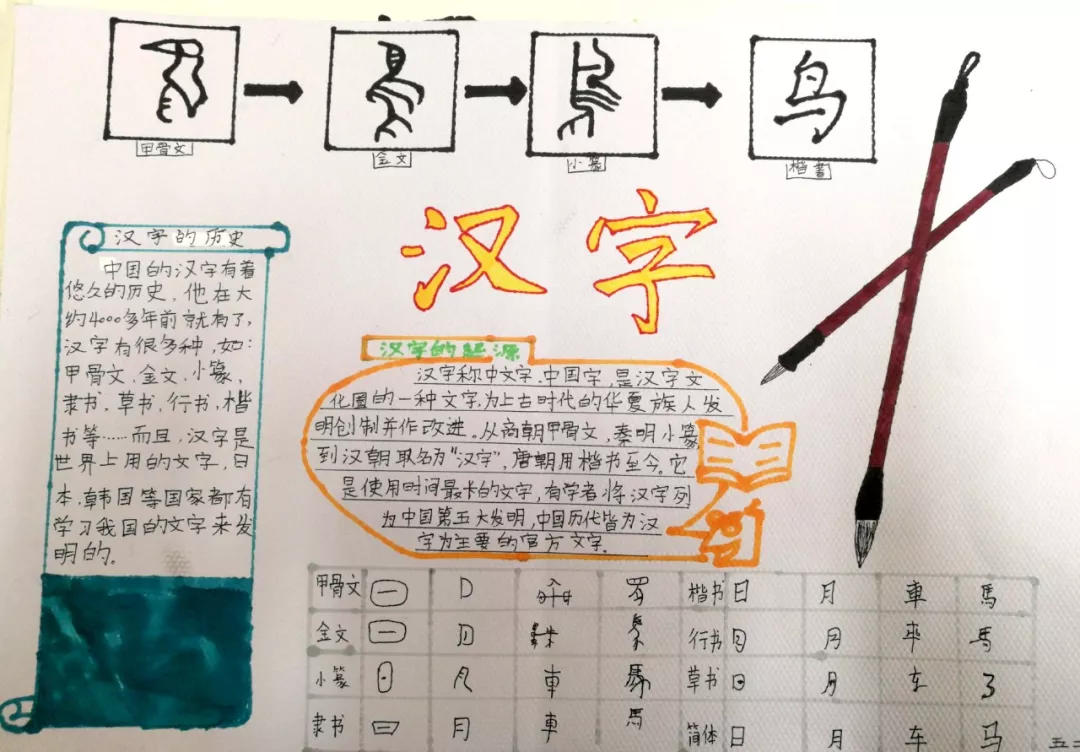 甲骨文
金文
小篆
楷書
鸟
汉字
汉字的历史
中国的汉字有着
悠久的历史，他在大
约4000多年前就有了，
汉字有很多种，如：
甲骨文、金文、小篆、
隶书、草书、行书、楷
书等……而且，汉字是
世界上用的文字，日
本、韩国等国家都有
学习我国的文字来发
明的。
汉字的起源
汉字称中文字、中国字，是汉字文
化圈的一种文字，为上古时代的华夏族人发
明创制并作改进。从商朝甲骨文，秦明小篆，
到汉朝取名为“汉字”，唐朝用楷书至今。它
是使用时间最长的文字，有学者将汉字列
为中国第五大发明，中国历代皆为汉
字为主要的官方文字。
甲骨文 楷书 日 月 車 馬
金文 行书 日 月 車 馬
小篆 車 草书 日 月 车
隶书 日 月 車 馬 简体 日 月 车 马